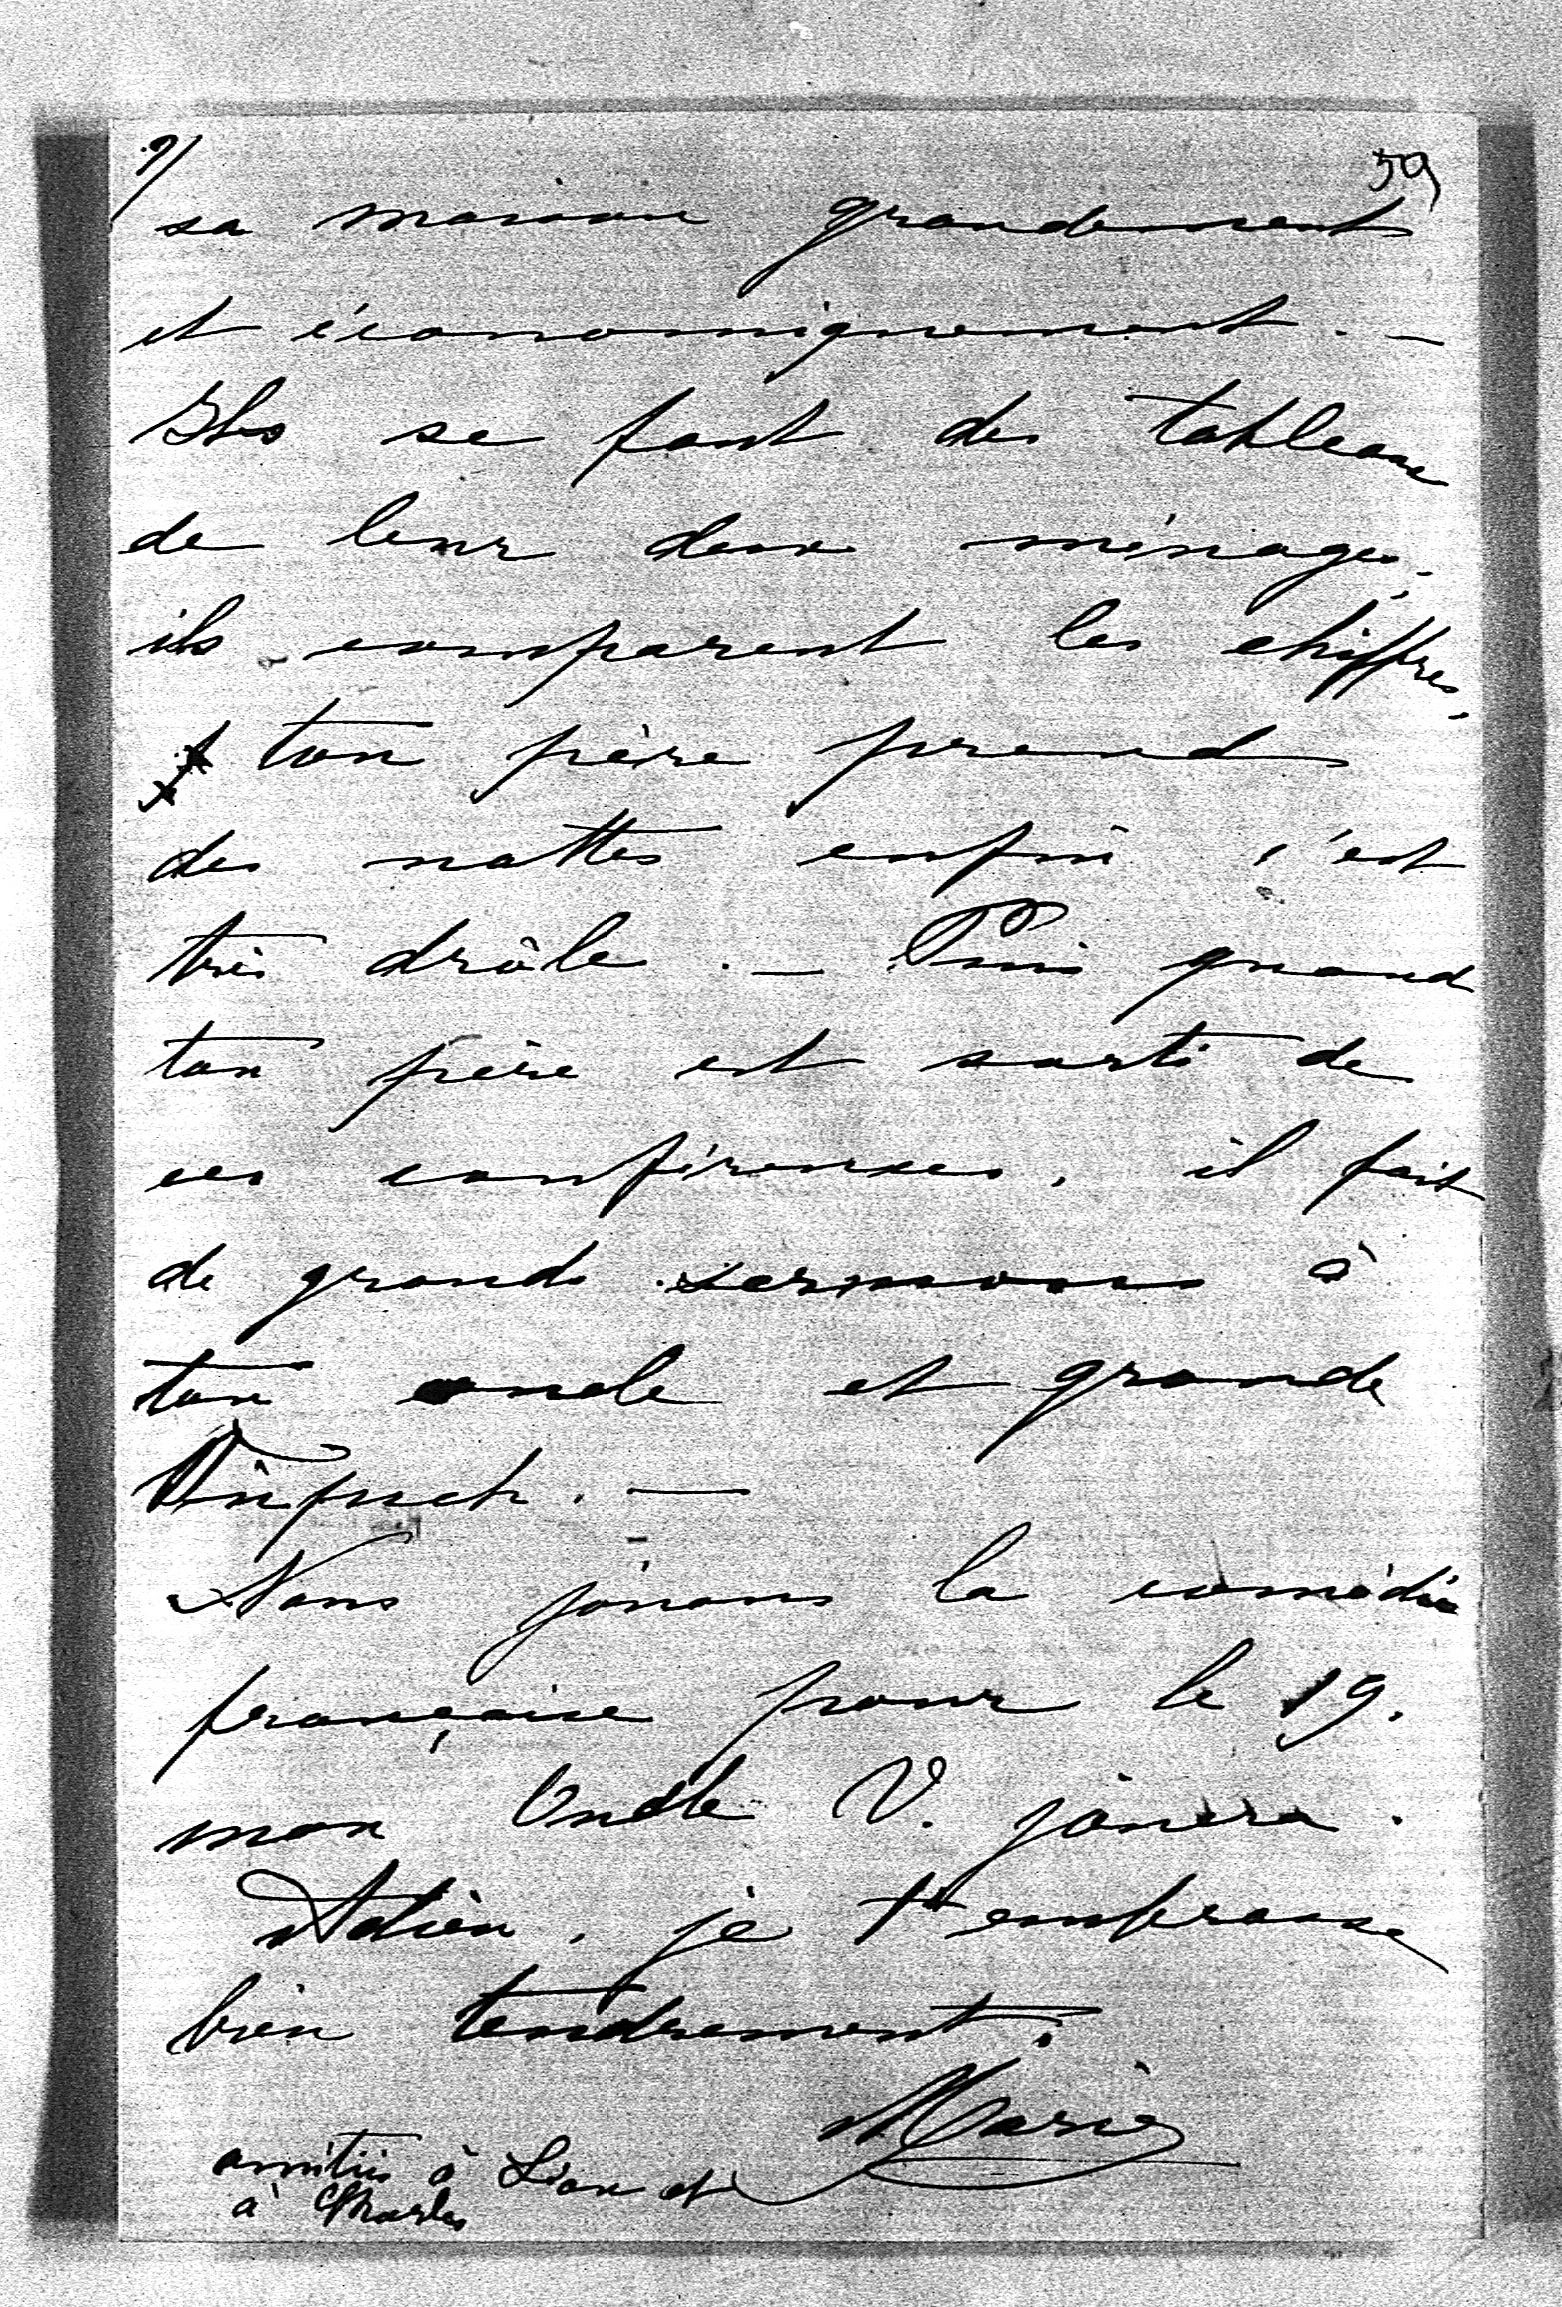 59
sa maison grandement
et économiquement. —
Ils se font des tableaux
de leur deux ménages,
ils comparent les chiffres,
ton père prend
des nottes enfin c'est
très drôle. — Puis quand
ton père est sorti de
ces conférences, il fait
de grands sermons à
ton oncle et grande
. —
Nous jouons la comédie
française pour le 19.
mon Oncle V. jouera.
Adieu, je t'embrasse
bien tendrement.
Marie
amitiés à Léon et
à Charles